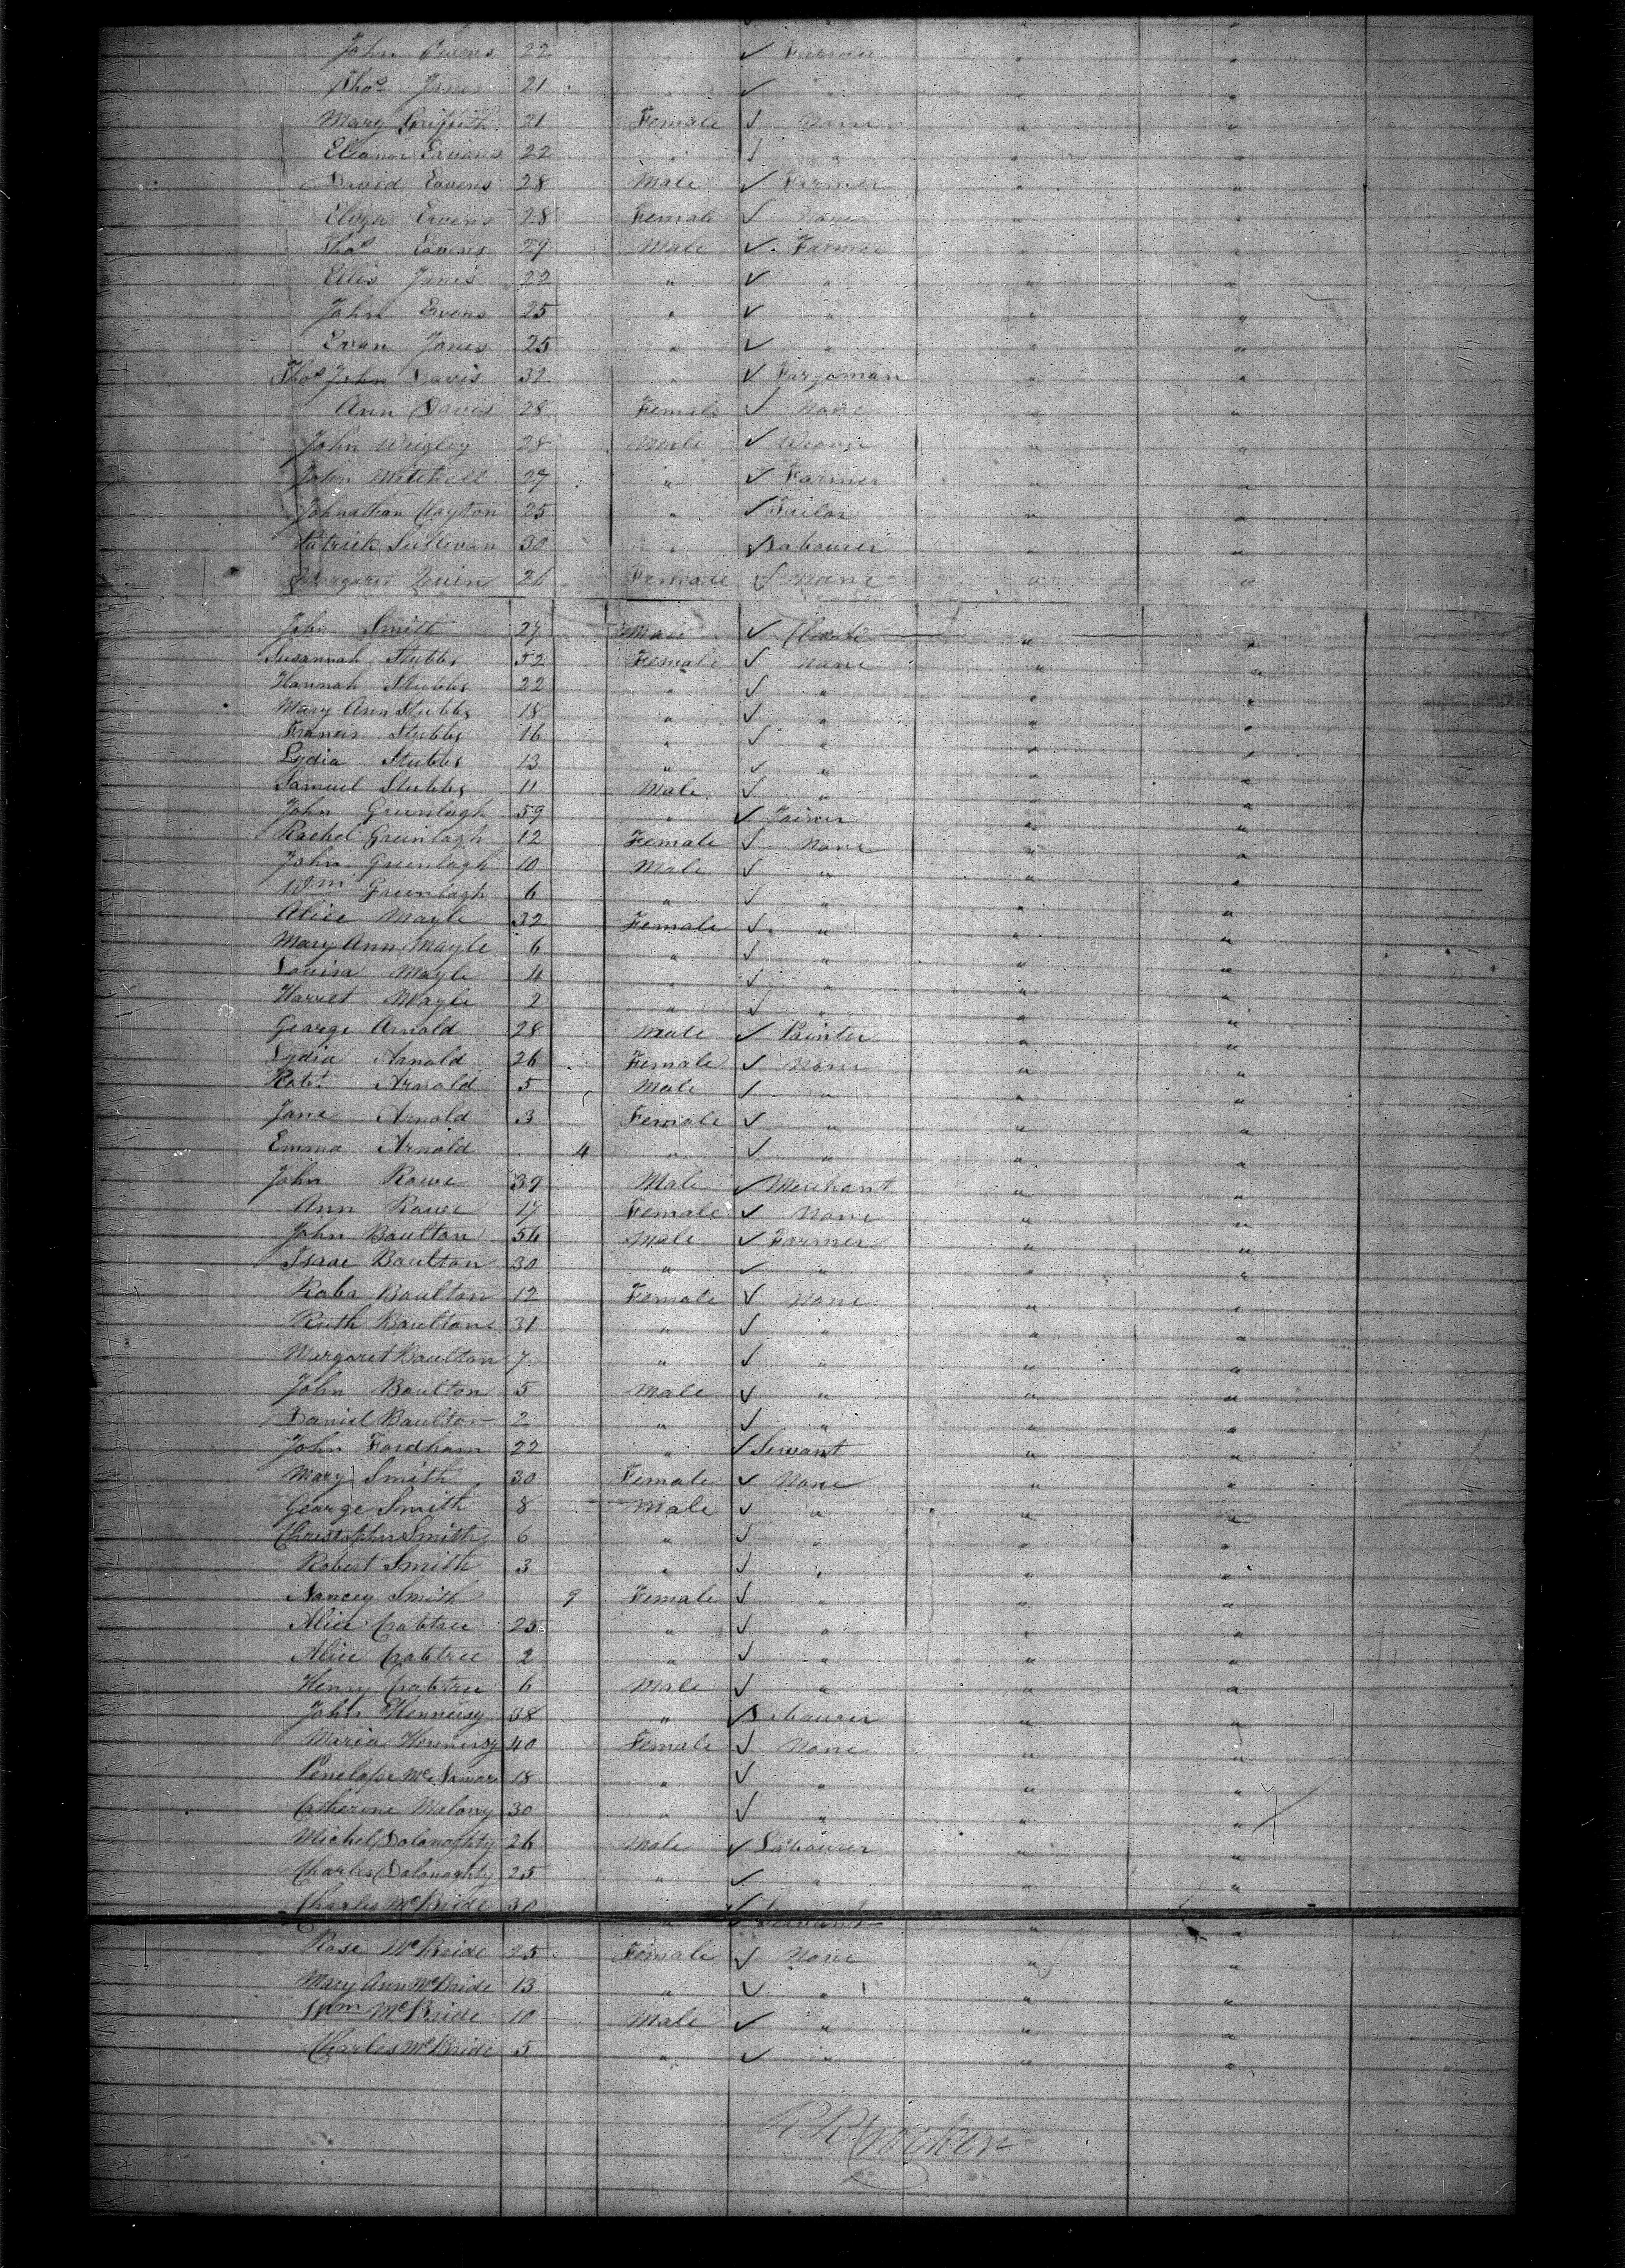 John Owens 22 " ✓ Farmer " "
Thos Jones 21 " ✓ " " "
Mary Griffith 21 Female ✓ None " "
Eleanor Ewens 22 " ✓ " " "
David Ewens 28 Male ✓ Farmer " "
Eliza Ewens 28 Female ✓ None " "
Thos Ewens 29 Male ✓ Farmer " "
Ellis Jones 22 " ✓ " " "
John Ewens 25 " ✓ " " "
Evan Jones 25 " ✓ " " "
Thos John Davis 32 " ✓ Forgeman " "
Ann Davis 28 Female ✓ None " "
John Wrigley 28 Male ✓ Weaver " "
John Mitchell 27 " ✓ Farmer " "
Johnathan Clayton 25 " ✓ Tailor " "
Patrick Sullivan 30 " ✓ Labourer " "
Margaret Quin 26 Female ✓ None " "
John Smith 27 Male ✓ " "
Susannah Stubbs 52 Female ✓ None " "
Hannah Stubbs 22 " ✓ " " "
Mary Ann Stubbs 18 " ✓ " " "
Francis Stubbs 16 " ✓ " " "
Lydia Stubbs 13 " ✓ " " "
Samuel Stubbs 11 Male ✓ " " "
John Greenlagh 59 " ✓ Joiner " "
Rachel Greenlagh 12 Female ✓ None " "
John Greenlagh 10 Male ✓ " " "
Wm Greenlagh 6 " ✓ " " "
Alice Mayle 32 Female ✓ " " "
Mary Ann Mayle 6 " ✓ " " "
Louisa Mayle 4 " ✓ " " "
Harriet Mayle 2 " ✓ " " "
George Arnold 28 Male ✓ Painter " "
Lydia Arnold 26 Female ✓ None " "
Robt Arnold 5 Male ✓ " " "
Jane Arnold 3 Female ✓ " " "
Emma Arnold 4 " ✓ " " "
John Rowe 39 Male ✓ Merchant " "
Ann Rowe 17 Female ✓ None " "
John Boulton 56 Male ✓ Farmer " "
Isaac Boulton 30 " ✓ " " "
Boulton 12 Female ✓ None " "
Ruth Boulton 31 " ✓ " " "
Margaret Boulton 7 " ✓ " " "
John Boulton 5 Male ✓ " " "
Daniel Boulton 2 " ✓ " " "
John Fordham 22 " ✓ Servant " "
Mary Smith 30 Female ✓ None " "
George Smith 8 Male ✓ " " "
Christopher Smith 6 " ✓ " " "
Robert Smith 3 " ✓ " " "
Nancey Smith 9 Female ✓ " " "
Alice Crabtree 25 " ✓ " " "
Alice Crabtree 2 " ✓ " " "
Henry Crabtree 6 Male ✓ " " "
John Hennesy 38 " ✓ Labourer " "
Maria Hennesy 40 Female ✓ None " "
Penelope McNamara 18 " ✓ " " "
Catherine Malony 30 " ✓ " " "
Michel Dolonaghty 26 Male ✓ Labourer " "
Charles Dolonaghty 25 " ✓ " " "
Charles McBride 30 " ✓ Servant " "
Rose McBride 25 Female ✓ None " "
Mary Ann McBride 13 " ✓ " " "
Wm McBride 10 Male ✓ " " "
Charles McBride 5 " ✓ " " "